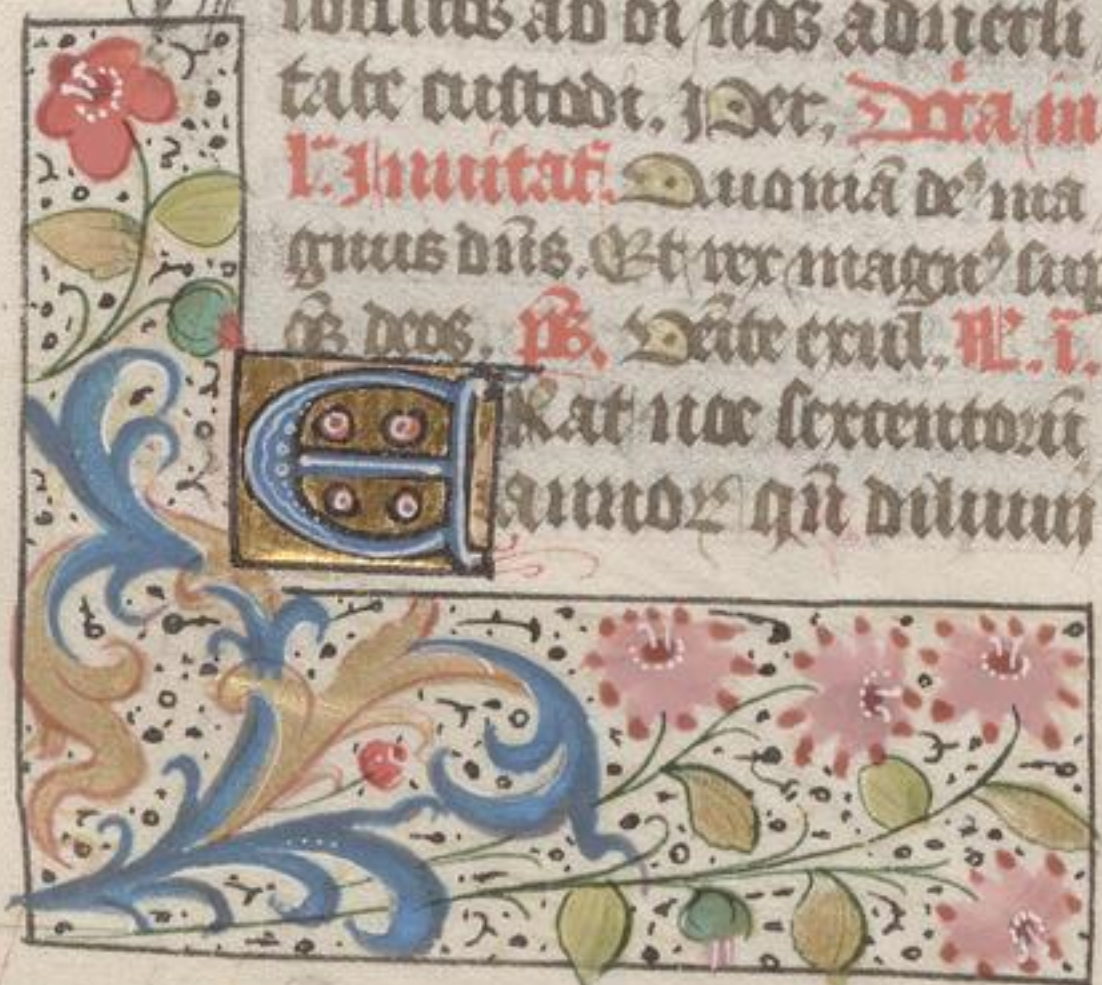 ab oi nos aduersi
tate custodi. Per. in
Inuitat̄. Quoniā deꝰ ma
gnus dn̄s. Et rex magnꝰ sup
oēs deos. ps. Ueīte exul̄. L. i.
ERat noe sexcentorū
annoꝝ qn̄ diluuii